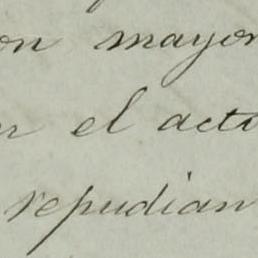 on mayor
el acto
repudian